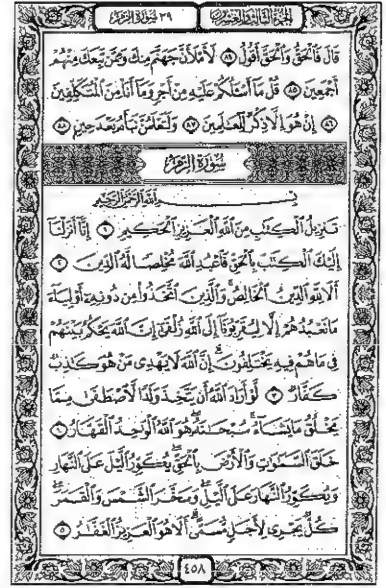 الجزء الثالث والعشرون
٣٩ سورة الزمر
قَالَ فَٱلْحَقُّ وَٱلْحَقَّ أَقُولُ ٨٤ لَأَمْلَأَنَّ جَهَنَّمَ مِنكَ وَمِمَّن تَبِعَكَ مِنْهُمْ
أَجْمَعِينَ ٨٥ قُلْ مَآ أَسْـَٔلُكُمْ عَلَيْهِ مِنْ أَجْرٍ وَمَآ أَنَا۠ مِنَ ٱلْمُتَكَلِّفِينَ
٨٦ إِنْ هُوَ إِلَّا ذِكْرٌ لِّلْعَٰلَمِينَ ٨٧ وَلَتَعْلَمُنَّ نَبَأَهُۥ بَعْدَ حِينٍۭ ٨٨
سُورَةُ الزُّمَرِ
بِسْمِ ٱللَّهِ ٱلرَّحْمَٰنِ ٱلرَّحِيمِ
تَنزِيلُ ٱلْكِتَٰبِ مِنَ ٱللَّهِ ٱلْعَزِيزِ ٱلْحَكِيمِ ١ إِنَّآ أَنزَلْنَآ
إِلَيْكَ ٱلْكِتَٰبَ بِٱلْحَقِّ فَٱعْبُدِ ٱللَّهَ مُخْلِصًا لَّهُ ٱلدِّينَ ٢
أَلَا لِلَّهِ ٱلدِّينُ ٱلْخَالِصُ ۚ وَٱلَّذِينَ ٱتَّخَذُوا۟ مِن دُونِهِۦٓ أَوْلِيَآءَ
مَا نَعْبُدُهُمْ إِلَّا لِيُقَرِّبُونَآ إِلَى ٱللَّهِ زُلْفَىٰٓ إِنَّ ٱللَّهَ يَحْكُمُ بَيْنَهُمْ
فِى مَا هُمْ فِيهِ يَخْتَلِفُونَ ۗ إِنَّ ٱللَّهَ لَا يَهْدِى مَنْ هُوَ كَٰذِبٌ
كَفَّارٌ ٣ لَّوْ أَرَادَ ٱللَّهُ أَن يَتَّخِذَ وَلَدًا لَّٱصْطَفَىٰ مِمَّا
يَخْلُقُ مَا يَشَآءُ ۚ سُبْحَٰنَهُۥ ۖ هُوَ ٱللَّهُ ٱلْوَٰحِدُ ٱلْقَهَّارُ ٤
خَلَقَ ٱلسَّمَٰوَٰتِ وَٱلْأَرْضَ بِٱلْحَقِّ ۖ يُكَوِّرُ ٱلَّيْلَ عَلَى ٱلنَّهَارِ
وَيُكَوِّرُ ٱلنَّهَارَ عَلَى ٱلَّيْلِ ۖ وَسَخَّرَ ٱلشَّمْسَ وَٱلْقَمَرَ ۖ
كُلٌّ يَجْرِى لِأَجَلٍ مُّسَمًّى ۗ أَلَا هُوَ ٱلْعَزِيزُ ٱلْغَفَّٰرُ ٥
٤٥٨